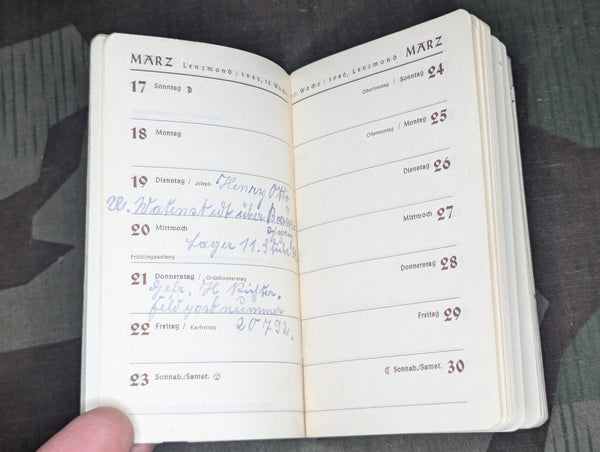 MÄRZ Lenzmond / 1940, 12. Woche
17 Sonntag
18 Montag
19 Dienstag / Joseph Henry Otto
W. Watenstedt über
20 Mittwoch
Lager 11. Stube
Frühlingsanfang
21 Donnerstag / Gründonnerstag
Gefr. H. Richter,
feldpostnummer
22 Freitag / Karfreitag 20792.
23 Sonnab./Samst.
13. Woche / 1940, Lenzmond MÄRZ
Ostersonntag / Sonntag 24
Ostermontag / Montag 25
Dienstag 26
Mittwoch 27
Donnerstag 28
Freitag 29
Sonnab./Samst. 30